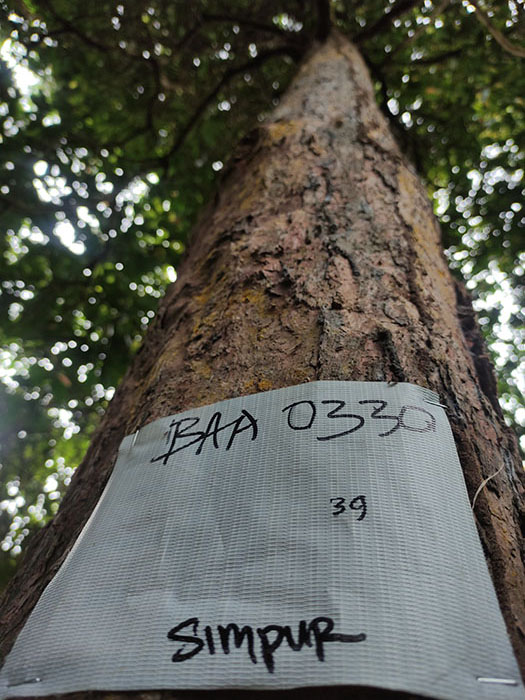 BAA 0330
39
SIMPUR